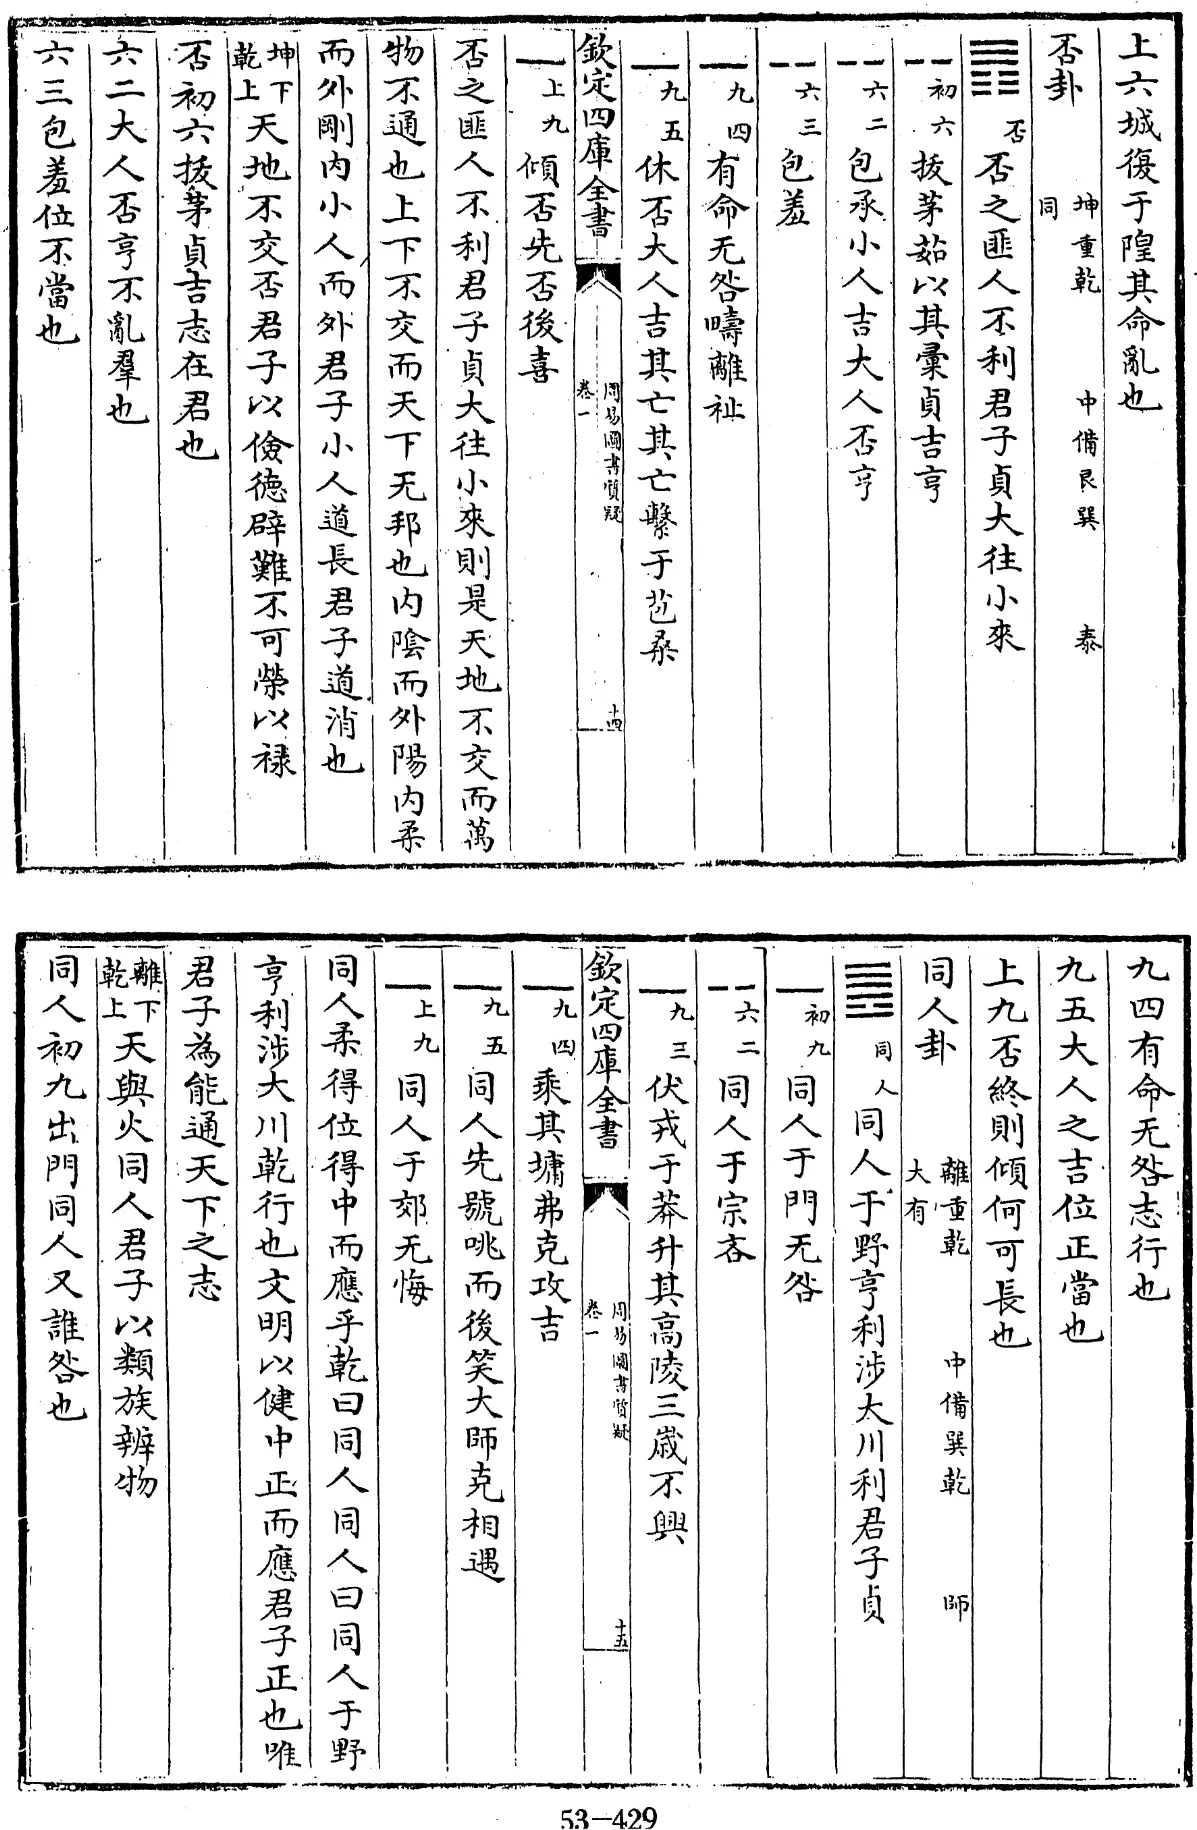 上六城復于隍其命亂也
否卦 坤重乾同 中備艮巽 泰
䷋ 否 否之匪人不利君子貞大往小來
⚋ 初六 拔茅茹以其彙貞吉亨
⚋ 六二 包承小人吉大人否亨
⚋ 六三 包羞
⚊ 九四 有命无咎疇離祉
⚊ 九五 休否大人吉其亡其亡繫于苞桑
欽定四庫全書 周易圖書質疑 卷一 十四
⚊ 上九 傾否先否後喜
否之匪人不利君子貞大往小來則是天地不交而萬
物不通也上下不交而天下无邦也内陰而外陽内柔
而外剛内小人而外君子小人道長君子道消也
坤下乾上 天地不交否君子以儉德辟難不可榮以祿
否初六拔茅貞吉志在君也
六二大人否亨不亂羣也
六三包羞位不當也
九四有命无咎志行也
九五大人之吉位正當也
上九否終則傾何可長也
同人卦 離重乾大有 中備巽乾 師
䷌ 同人 同人于野亨利涉大川利君子貞
⚊ 初九 同人于門无咎
⚋ 六二 同人于宗吝
⚊ 九三 伏戎于莽升其高陵三歲不興
欽定四庫全書 周易圖書質疑 卷一 十五
⚊ 九四 乘其墉弗克攻吉
⚊ 九五 同人先號咷而後笑大師克相遇
⚊ 上九 同人于郊无悔
同人柔得位得中而應乎乾曰同人同人曰同人于野
亨利涉大川乾行也文明以健中正而應君子正也唯
君子為能通天下之志
離下乾上 天與火同人君子以類族辨物
同人初九出門同人又誰咎也
53-429